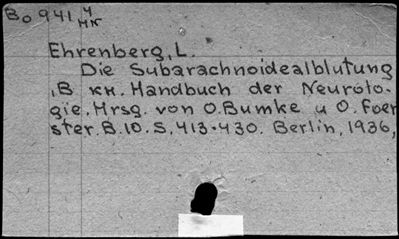 Во 941 4/нк
Ehrenberg, L.
Die Subarachnoidealblutung
, В кн. Handbuch der Neurolo-
gie. Hrsg. von O. Bumke u O. Foer
ster. B. 10. S. 413-430. Berlin, 1936,